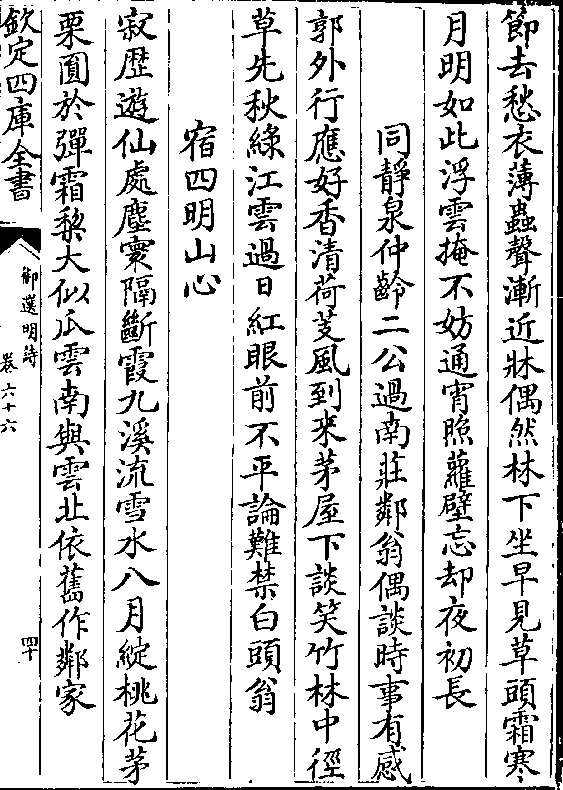 節去愁衣薄蟲聲漸近牀偶然林下坐早見草頭霜寒
月明如此浮雲掩不妨通宵照蘿壁忘却夜初長
同靜泉仲齡二公過南莊鄰翁偶談時事有感
郭外行應好香清荷芰風到來茅屋下談笑竹林中徑
草先秋綠江雲過日紅眼前不平論難禁白頭翁
宿四明山心
寂歴遊仙處塵寰隔斷霞九溪流雪水八月綻桃花茅
栗圓於彈霜棃大似瓜雲南與雲北依舊作鄰家
欽定四庫全書
御選明詩
卷六十六
四十